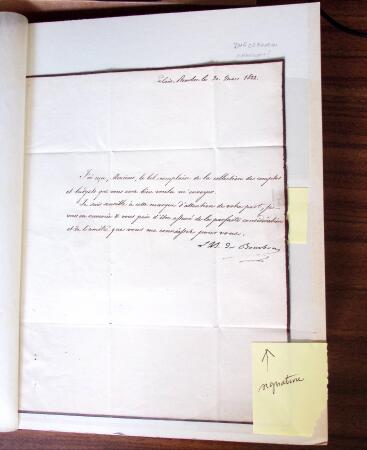 Palais Bourbon le 30 mars 1822.
J'ai reçu, Monsieur, le bel exemplaire de la collection des comptes
et budgets que vous avez bien voulu m'envoyer.
Je suis sensible à cette marque d'attention de votre part; je
vous en remercie et vous prie d'être assuré de la parfaite considération
et de l'amitié que vous me connaissez pour vous.
de Bourbon
signature